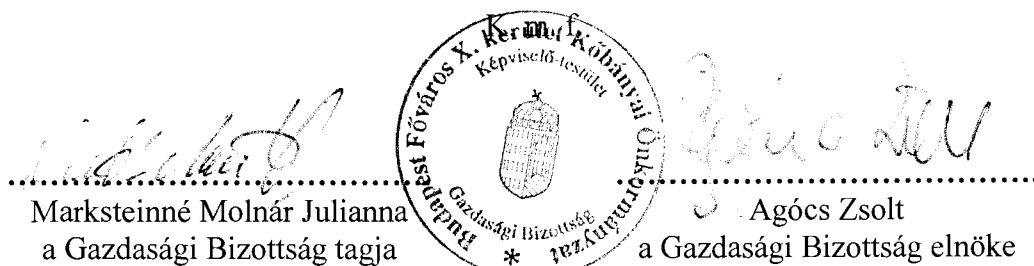 K. m. f.
Budapest Főváros X. kerület Kőbányai Önkormányzat
Képviselő-testület
Gazdasági Bizottság
*
Marksteinné Molnár Julianna
a Gazdasági Bizottság tagja
Agócs Zsolt
a Gazdasági Bizottság elnöke